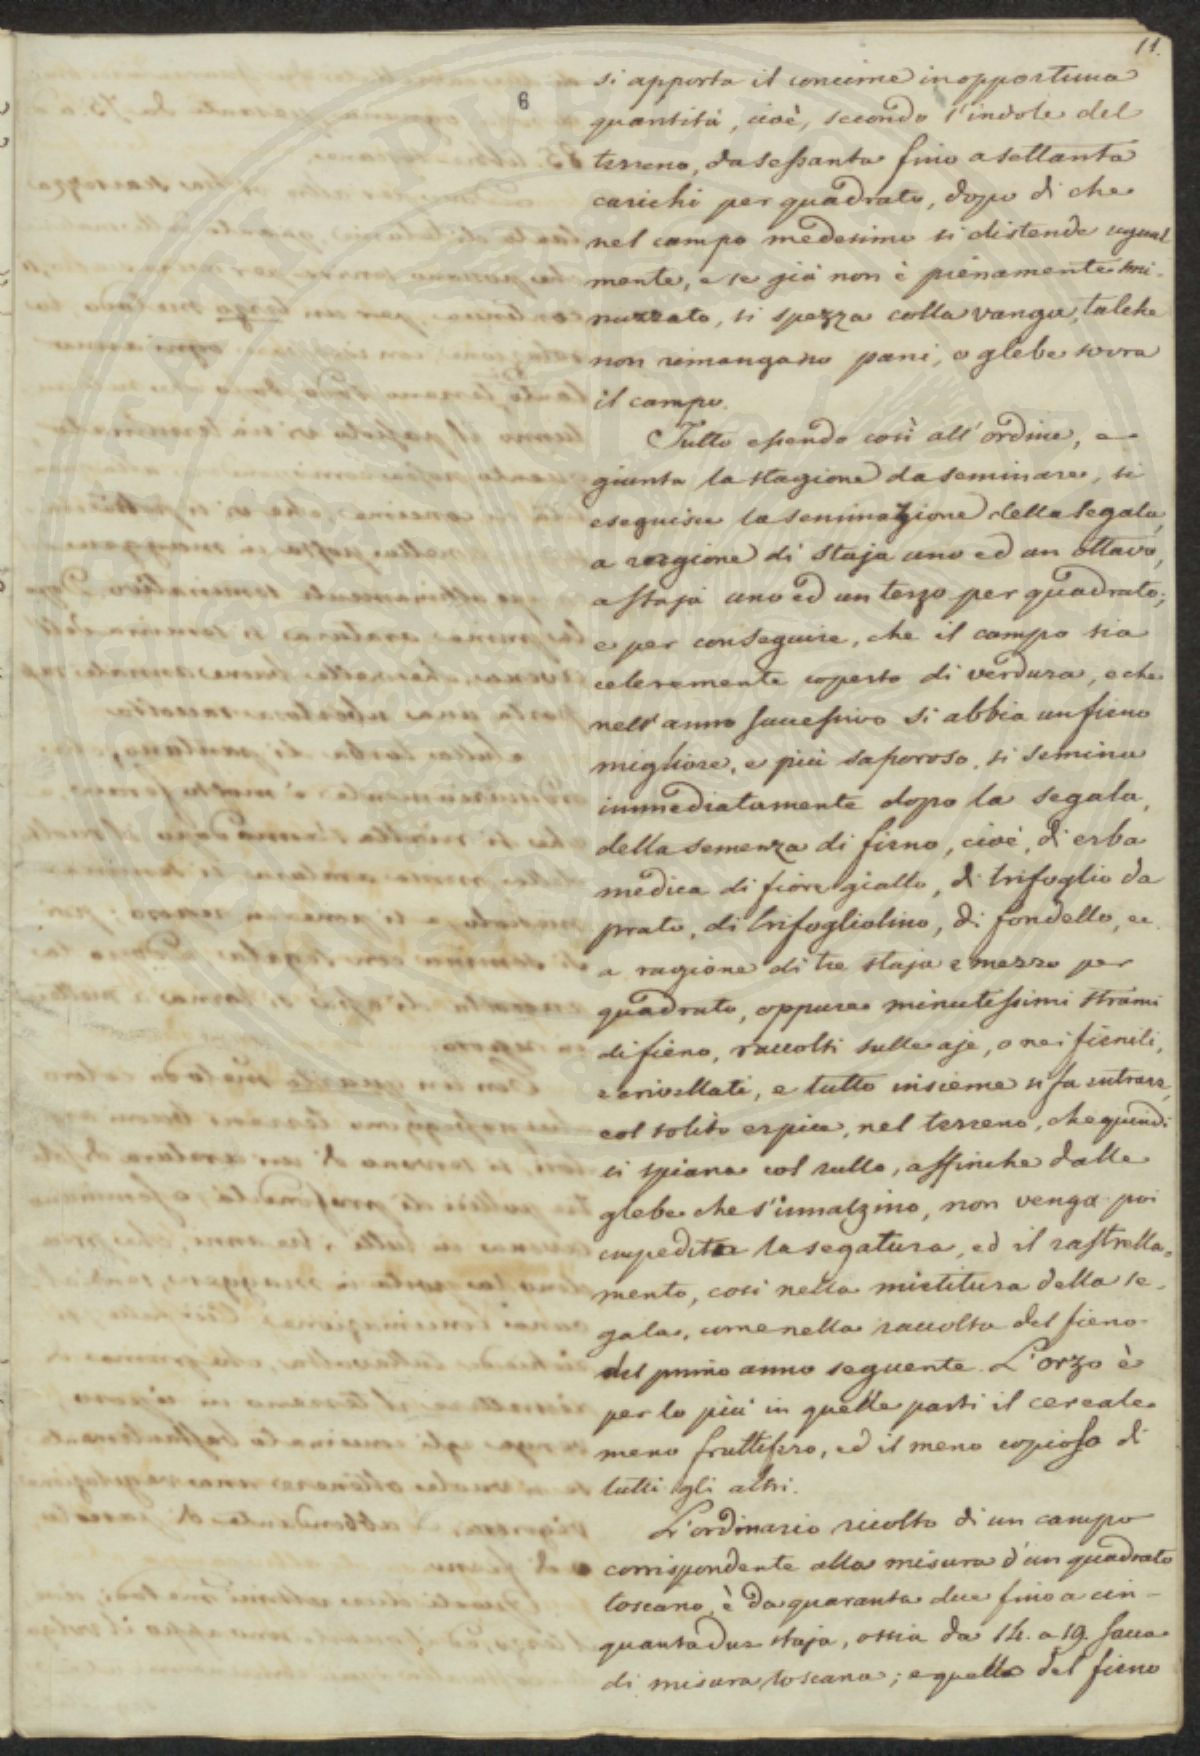 11.
6
si apporta il concime in opportuna
quantità, cioè, secondo l'indole del
terreno, da sessanta fino a settanta
carichi per quadrato, dopo di che
nel campo medesimo si distende ugual
mente, e se già non è pienamente smi-
nuzzato, si spezza colla vanga, talchè
non rimangano pani, o glebe sovra
il campo.
Tutto essendo così all'ordine, e
giunta la stagione da seminare, si
eseguisce la seminazione della segala,
a ragione di staja uno ed un ottavo,
a staja uno ed un terzo per quadrato;
e per conseguire, che il campo sia
celeremente coperto di verdura, e che
nell'anno successivo si abbia un fieno
migliore, e più saporoso, si semina
immediatamente dopo la segala,
della semenza di fieno, cioè, di erba
medica di fiore giallo, di trifoglio da
prato, di trifogliolino, di fondello, ec.
a ragione di tre staja e mezzo per
quadrato, oppure minutissimi strami
di fieno, raccolti sulle aje, o nei fienili,
e crivellati, e tutto insieme si fa entrare,
col solito erpice, nel terreno, che quindi
si spiana col rullo, affinche dalle
glebe che s'innalzino, non venga poi
impedita la segatura, ed il rastrella-
mento, così nella mietitura della se-
gala, come nella raccolta del fieno
del primo anno seguente. L'orzo è
per lo più in quelle parti il cereale
meno fruttifero, ed il meno copioso di
tutti gli altri.
L'ordinario ricolto di un campo
corrispondente alla misura d'un quadrato
toscano, è da quaranta due fino a cin-
quantadue staja, ossia da 14. a 19. sacca
di misura toscana; e quello del fieno